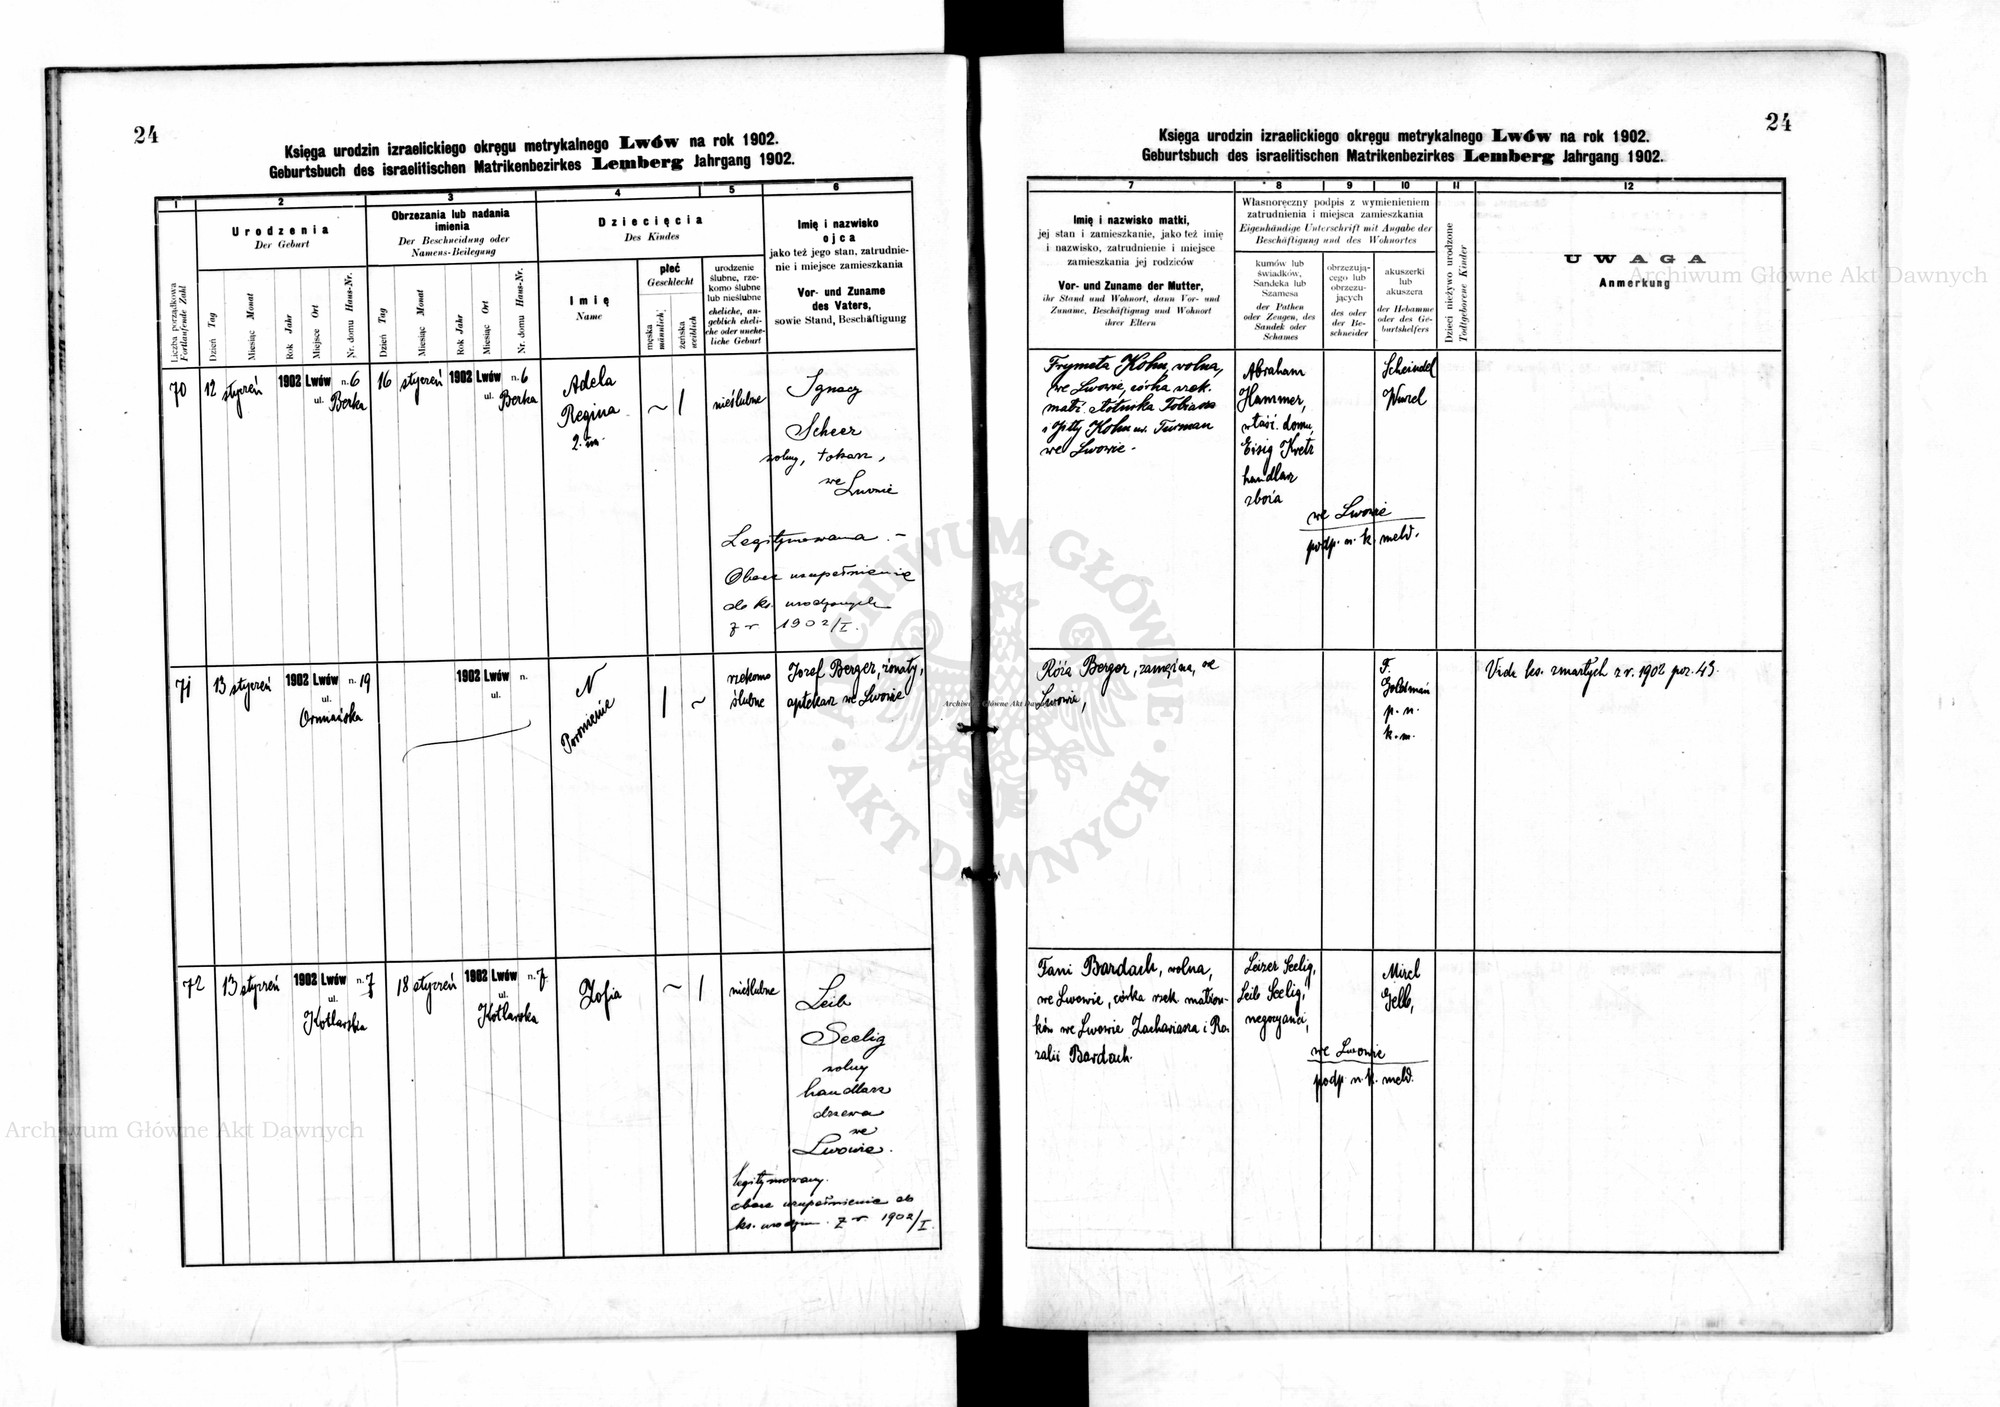 24
Księga urodzin izraelickiego okręgu metrykalnego Lwów na rok 1902.
Geburtsbuch des israelitischen Matrikenbezirkes Lemberg Jahrgang 1902.
1
2
3
4
5
6
Liczba porządkowa
Fortlaufende Zahl
Urodzenia
Der Geburt
Dzień Tag
Miesiąc Monat
Rok Jahr
Miejsce Ort
Nr. domu Haus-Nr.
Obrzezania lub nadania
imienia
Der Beschneidung oder
Namens-Beilegung
Dzień Tag
Miesiąc Monat
Rok Jahr
Miesiąc Ort
Nr. domu Haus-Nr.
Dziecięcia
Des Kindes
Imię
Name
płeć
Geschlecht
męska
männlich
żeńska
weiblich
urodzenie
ślubne, rze-
komo ślubne
lub nieślubne
eheliche, an-
geblich eheli-
che oder unehe-
liche Geburt
Imię i nazwisko
ojca
jako też jego stan, zatrudnie-
nie i miejsce zamieszkania
Vor- und Zuname
des Vaters,
sowie Stand, Beschäftigung
70
12 styczeń 1902 Lwów n. 6
ul. Berka
16 styczeń 1902 Lwów n. 6
ul. Berka
Adela
Regina
2. im.
~ 1
nieślubne
Ignacy
Scheer
wolny, tokarz,
we Lwowie
Legitymowana.-
Obacz uzupełnienie
do ks. urodzonych
z r 1902/I.
71
13 styczeń 1902 Lwów n. 19
ul. Ormiańska
1902 Lwów n.
ul.
N
Poronienie
1 ~
rzekomo
ślubne
Jozef Berger, żonaty,
aptekarz we Lwowie
72
13 styczeń 1902 Lwów n. 7
ul. Kotlarska
18 styczeń 1902 Lwów n. 7
ul. Kotlarska
Zofia
~ 1
nieślubne
Leib
Seelig
wolny
handlarz
drzewa
we
Lwowie.
legitymowany.
obacz uzupełnienie do
ks. urodzon. z r. 1902/I.
24
Księga urodzin izraelickiego okręgu metrykalnego Lwów na rok 1902.
Geburtsbuch des israelitischen Matrikenbezirkes Lemberg Jahrgang 1902.
7
8
9
10
11
12
Imię i nazwisko matki,
jej stan i zamieszkanie, jako też imię
i nazwisko, zatrudnienie i miejsce
zamieszkania jej rodziców
Vor- und Zuname der Mutter,
ihr Stand und Wohnort, dann Vor- und
Zuname, Beschäftigung und Wohnort
ihrer Eltern
Własnoręczny podpis z wymienieniem
zatrudnienia i miejsca zamieszkania
Eigenhändige Unterschrift mit Angabe der
Beschäftigung und des Wohnortes
kumów lub
świadków,
Sandeka lub
Szamesa
der Pathen
oder Zeugen, des
Sandek oder
Schames
obrzezują-
cego lub
obrzezu-
jących
des oder
der Be-
schneider
akuszerki
lub
akuszera
der Hebamme
oder des Ge-
burtshelfers
Dzieci nieżywo urodzone
Todtgeborene Kinder
UWAGA
Anmerkung
Frymeta Kohn, wolna,
we Lwowie, córka rzek.
małż. Tobiasza
i Gitly Kohn ur. Turman
we Lwowie.
Abraham
Hammer,
właśc. domu,
Eisig Kretz
handlarz
zboża
Scheindel
Wurzel
we Lwowie
podp. n. k. meld.
Róża Berger, zamężna, we
Lwowie,
F.
Goldman
p. n.
k. m.
Vide ks. zmarłych z r. 1902 poz. 43.
Fani Bardach, wolna,
we Lwowie, córka rzek małżon-
ków we Lwowie Zachariasza i Ro-
zalii Bardach.
Leizer Seelig,
Leib Seelig,
negocyanci,
Mirel
Gelb,
we Lwowie
podp. n. k. meld.
Archiwum Główne Akt Dawnych
Archiwum Główne Akt Dawnych
Archiwum Główne Akt Dawnych
ARCHIWUM GŁÓWNE
AKT DAWNYCH